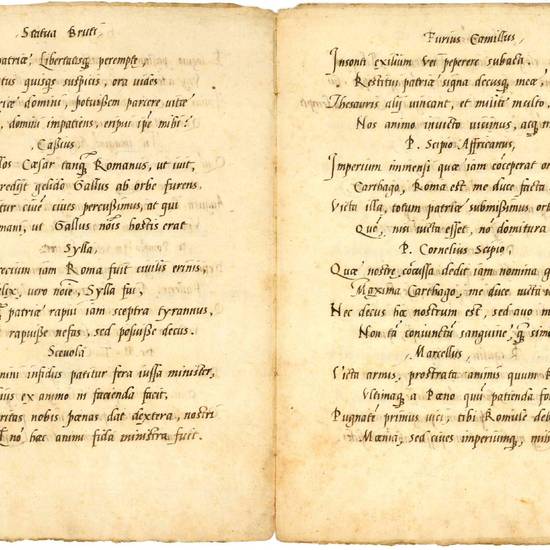 Statua Bruti
patriæ, Libertatisq; perempte,
quisqs suspicis, ora vides
domini, potuissem parcere vitæ
, domini impatiens, eripui ipe mihi.
Cassius
Cæsar tanq; Romanus, ut iuit,
gelido Gallus ab orbe furens,
cives percussimus, at qui
, ut Gallus nois hostis erat
Sylla,
iam Roma fuit civilus erinis,
, vero noie, Sylla fui,
patriæ rapui iam sceptra tyrannus,
rapuisse nefas, sed posuisse decus.
Scevola
infidus patitur fera iussa minister,
ex animo ni facienda facit,
nobis pœnas dat dextera, nostri
nō hæc animi fida ministra fuit.
Furius Camillus,
Insonti exilium Vei peperere subacti.
Restitui patriæ signa decusq; meæ,
Thesauris alij vincant, et militi multo,
Nos animo invicto vicinus, acq;
P. Scipio Affricanus,
Imperium immensi quæ iam cœperat or
Carthago, Roma est me duce facta
Victa illa, totum patriæ submisimus orb
Quo, nui victa esset, no domitura
P. Cornelius Scipio,
Quæ nostre, dedit iam nomina
Maxima Carthago, me duce victa
Nec decus hoc nostrum est, sed avo m
Non tā coniuncta sanguine, q; sim
Marcellus,
Victa armis, prostrata animis quum
Ultimaq; a Pœno qui patienda fo
Pugnate primus vici, tibi Romule deb
Mœnia, sed cives imperiumq; mih